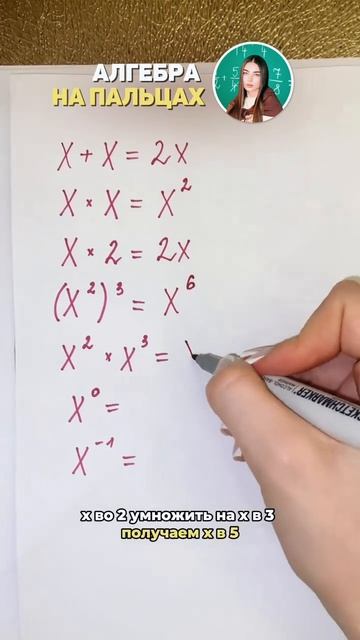 АЛГЕБРА
НА ПАЛЬЦАХ
X + X = 2X
X × X = X²
X × 2 = 2X
(X²)³ = X⁶
X² × X³ =
X⁰ =
X⁻¹ =
SKETCHMARKER
х во 2 умножить на х в 3
получаем х в 5